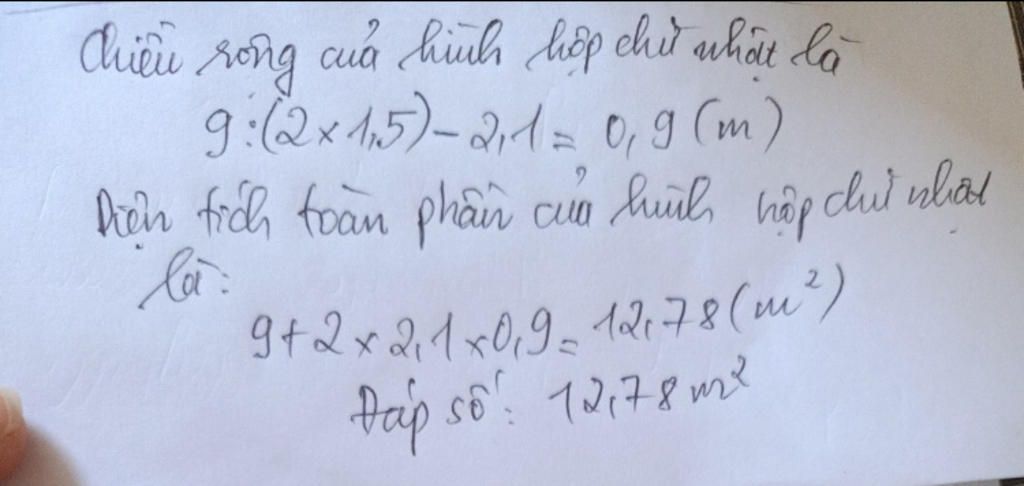 Chiều rộng của hình hộp chữ nhật là
9:(2×1,5)-2,1=0,9(m)
Diện tích toàn phần của hình hộp chữ nhật
là:
9+2×2,1×0,9=12,78(m²)
Đáp số: 12,78m²